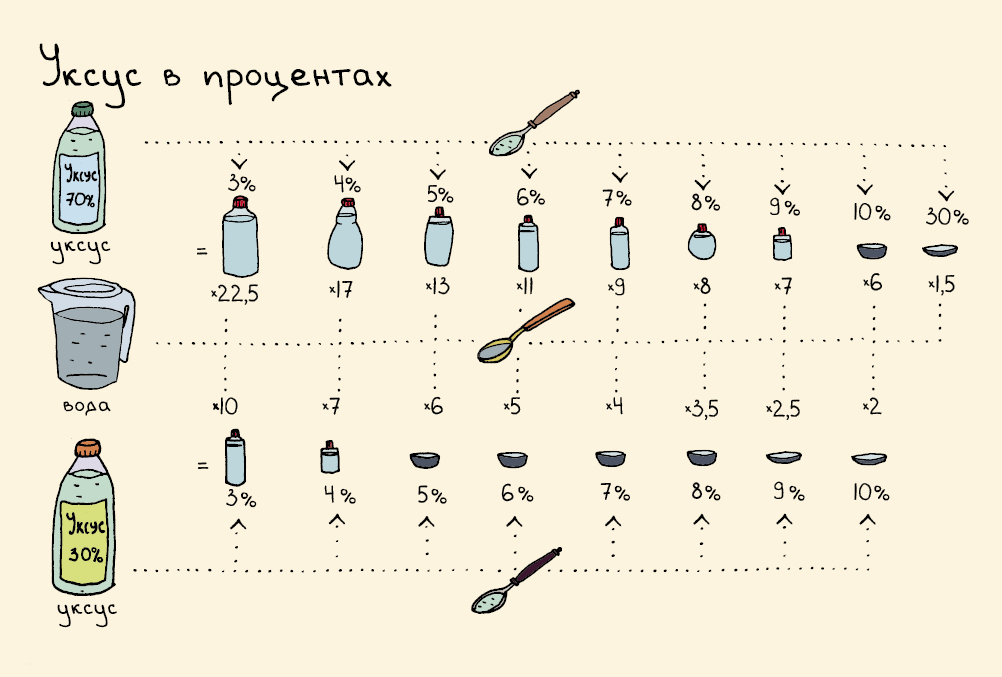 Уксус в процентах
Уксус
70%
уксус
3% 4% 5% 6% 7% 8% 9% 10% 30%
=
×22,5 ×17 ×13 ×11 ×9 ×8 ×7 ×6 ×1,5
вода
×10 ×7 ×6 ×5 ×4 ×3,5 ×2,5 ×2
=
3% 4% 5% 6% 7% 8% 9% 10%
Уксус
30%
уксус